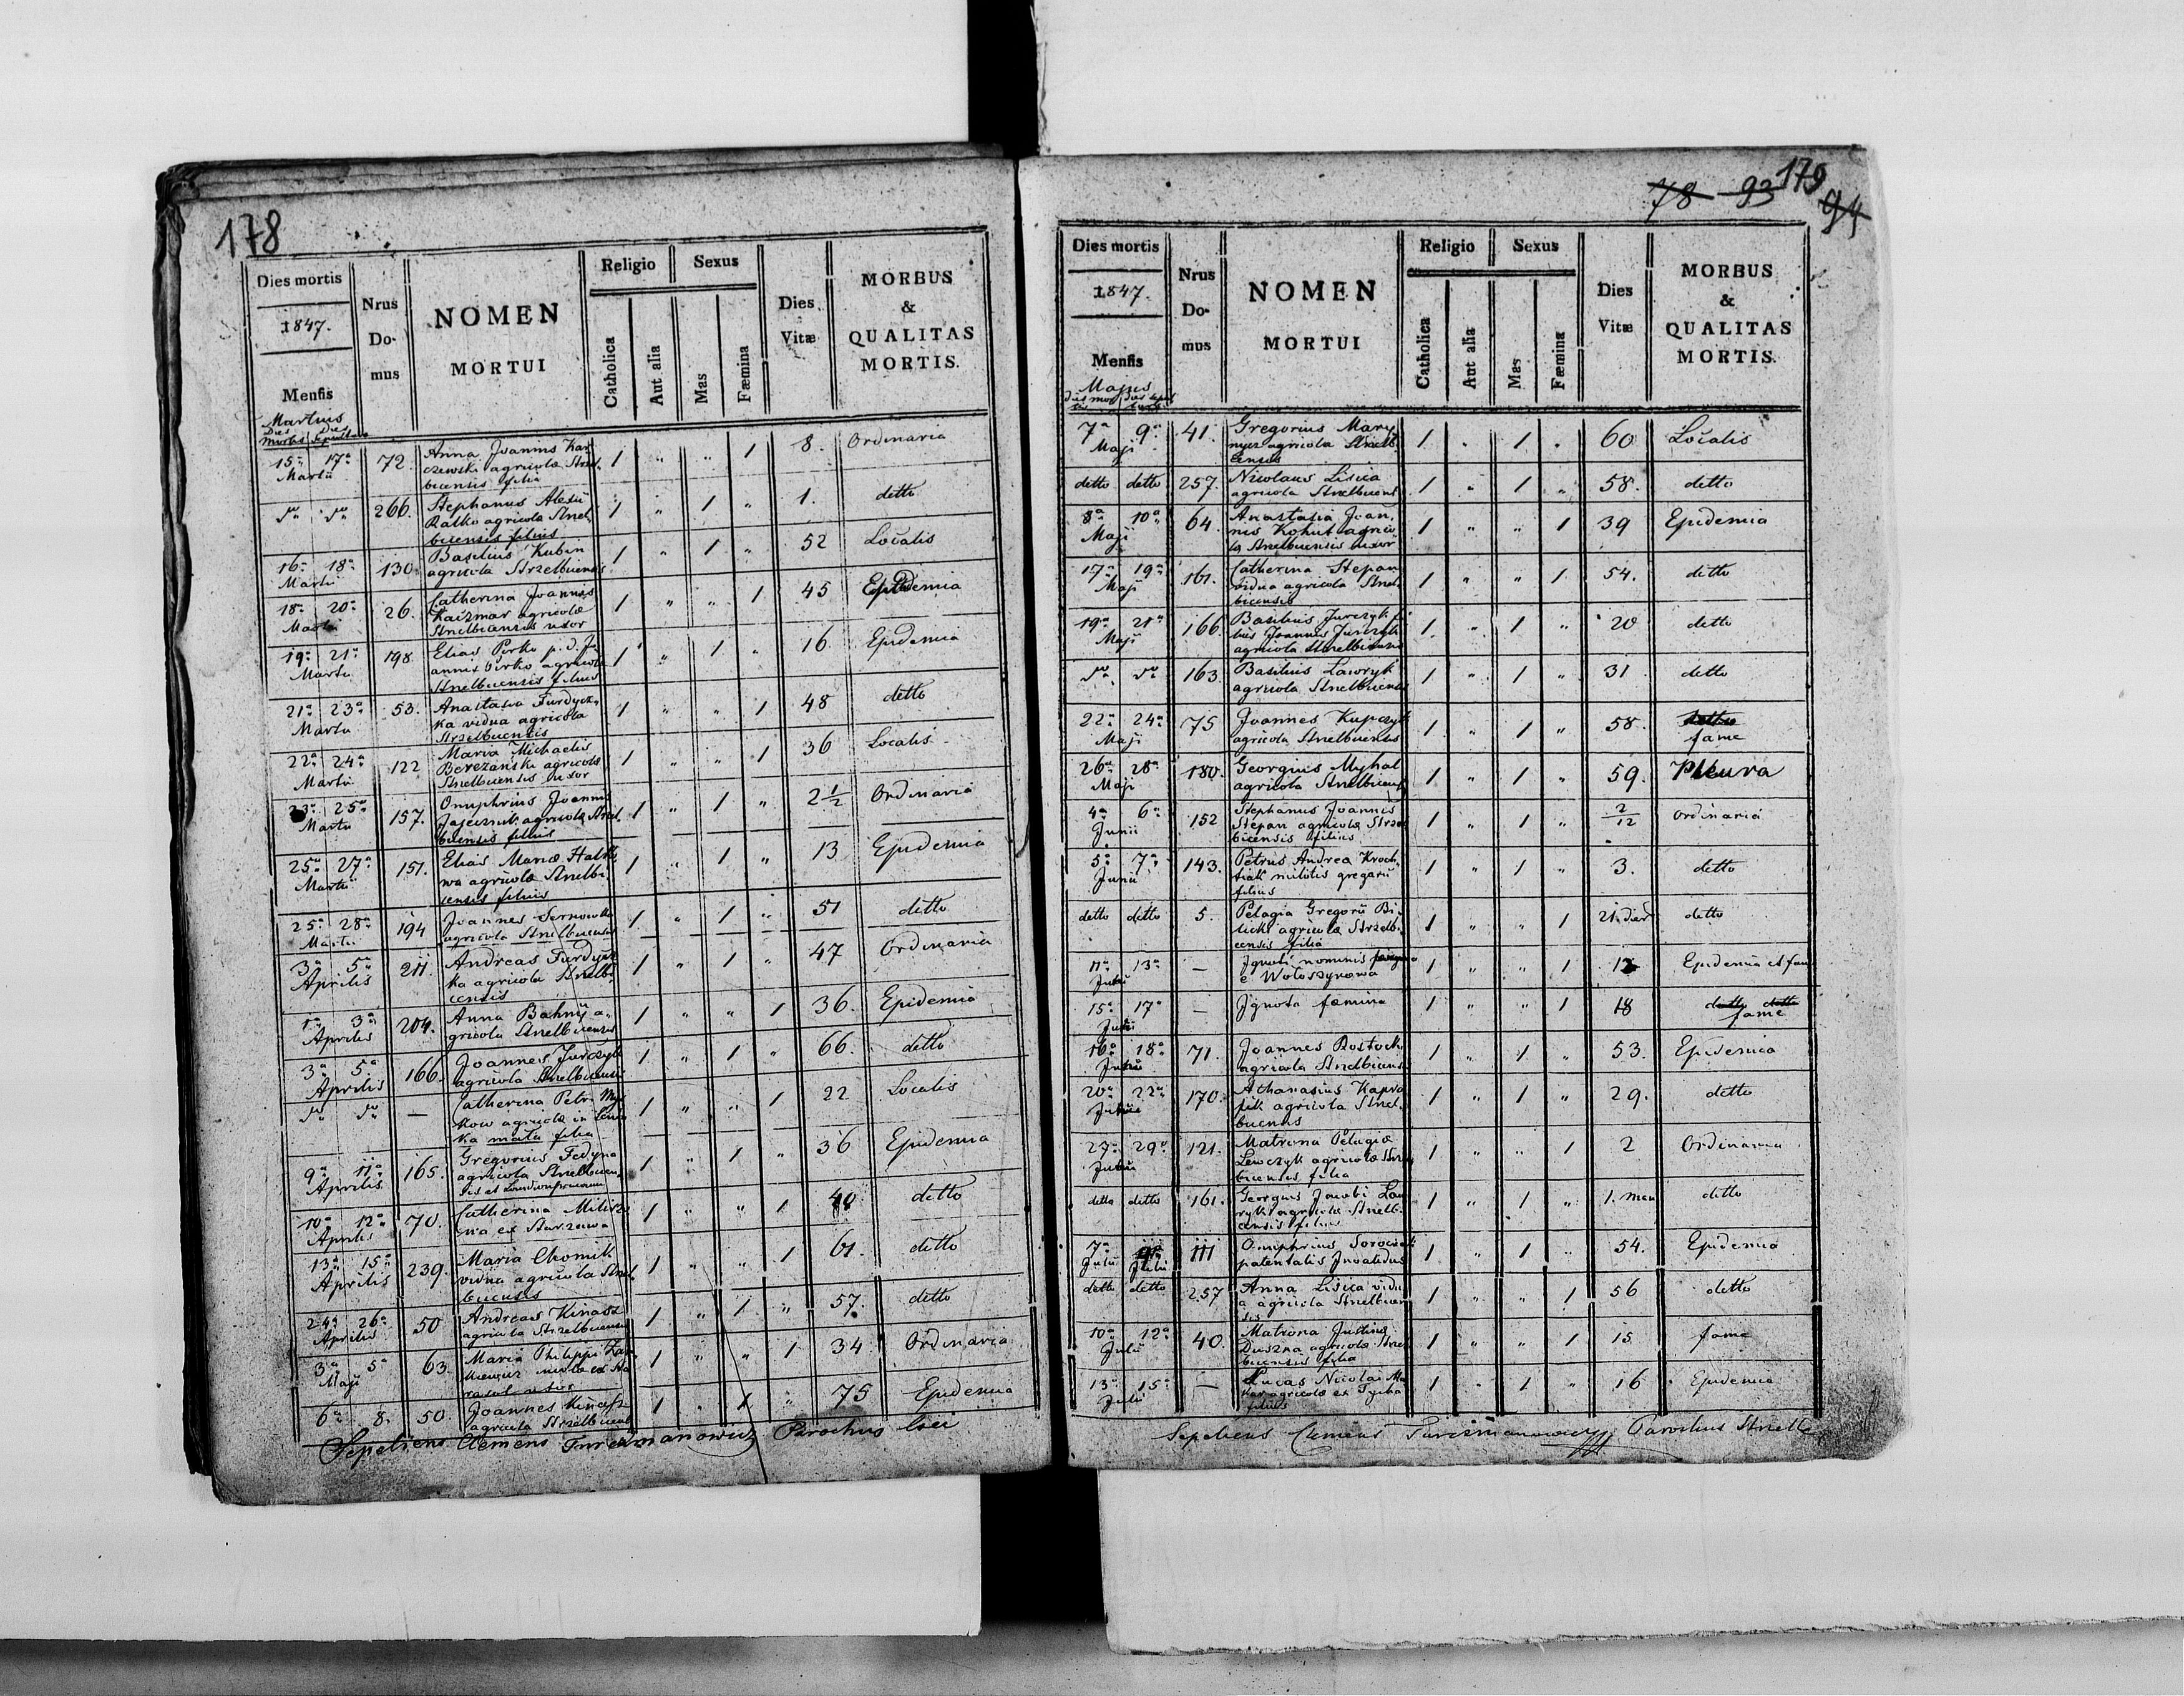 178
Dies mortis
1847.
Mensis
Martius
Dies mortis Dies sepulturae
Nrus Domus
NOMEN
MORTUI
Religio
Catholica
Aut alia
Sexus
Mas
Fæmina
Dies Vitæ
MORBUS
&
QUALITAS
MORTIS.
15a 17a Martii 72. Anna Joannis
agricolæ
bicensis filia 1 " " 1 8. Ordinaria
dto dto 266. Stephanus Alexii
Ratko agricolæ Strzel
bicensis filius 1 " 1 " 1. detto
16a 18a Martii 130. Basilius Kubin
agricola Strzelbicensis 1 " 1 " 52 Localis
18a 20a Martii 26. Catherina Joannis
Kaczmar agricolæ
Strzelbicensis uxor 1 " " 1 45 Epidemia
19a 21a Martii 198 Elias Pirko p. d. Jo
annis Pirko agricolæ
Strzelbicensis filius 1 " 1 " 16 Epidemia
21a 23a Martii 53. Anastasia Furdycz
ka vidua agricola
Strzelbicensis 1 " " 1 48 detto
22a 24a Martii 122 Maria Michaelis
Berezanski agricolæ
Strzelbicensis uxor 1 " " 1 36 Localis
23a 25a Martii 157. Onuphrius Joannis
agricolæ Strzel
bicensis filius 1 " 1 " 2 1/2 Ordinaria
25a 27a Martii 151. Elias Mariæ
agricolæ Strzelbi
censis filius 1 " 1 " 13 Epidemia
25a 28a Martii 194 Joannes
agricola Strzelbicensis 1 " 1 " 51 detto
3a 5a Aprilis 211. Andreas Furdycz
ka agricola Strzelbi
censis 1 " 1 " 47 Ordinaria
1a 3a Aprilis 204. Anna Bahnij a
gricola Strzelbicensis 1 " " 1 36. Epidemia
3a 5a Aprilis 166. Joannes Jurczyk
agricola Strzelbicensis 1 " 1 " 66. detto
dto dto — Catherina Petri
kow agricolæ in
ka mała filia 1 " " 1 22 Localis
9a 11a Aprilis 165. Gregorius Fedyna
agricola Strzelbicen
sis et 1 " 1 " 36 Epidemia
10a 12a Aprilis 70. Catherina
na ex 1 " " 1 40 detto
13a 15a Aprilis 239. Maria Chomik
vidua agricola Strzel
bicensis 1 " " 1 61. detto
24a 26a Aprilis 50 Andreas Kinasz
agricola Strzelbicensis 1 " 1 " 57. detto
3a 5a Maji 63. Maria Philippi
ex
uxor 1 " " 1 34 Ordinaria
6a 8. 50. Joannes Kinasz
agricola Strzelbicensis 1 " 1 " 75 Epidemia
Sepeliens Clemens Turczmanowicz Parochus loci
78 93 179
94
Dies mortis
1847.
Mensis
Majus
Dies mortis Dies sepulturae
Nrus Domus
NOMEN
MORTUI
Religio
Catholica
Aut alia
Sexus
Mas
Fæmina
Dies Vitæ
MORBUS
&
QUALITAS
MORTIS.
7a 9a Maji 41. Gregorius Mary
agricola Strzelbi
censis 1 " 1 " 60 Localis
detto detto 257. Nicolaus Lisica
agricola Strzelbicens 1 " 1 " 58. detto
8a 10a Maji 64. Anastasia Joan
nis Kohut agrico
la Strzelbicensis uxor 1 " " 1 39 Epidemia
17a 19a Maji 161. Catherina Stepan
vidua agricola Strzel
bicensis 1 " " 1 54. detto
19a 21a Maji 166. Basilius Jurczyk fi
lius Joannis Jurczyk
agricola Strzelbicensis 1 " 1 " 20 detto
dto dto 163. Basilius Lawryk
agricola Strzelbicensis 1 " 1 " 31 detto
22a 24a Maji 75 Joannes Kupczyk
agricola Strzelbicensis 1 " 1 " 58. detto
fame
26a 28a Maji 180. Georgius Myhal
agricola Strzelbicens 1 " 1 " 59. Pleura
4a 6a Junii 152 Stephanus Joannis
Stepan agricolæ Strzel
bicensis filius 1 " 1 " 2/12 Ordinaria
5a 7a Junii 143. Petrus Andrea Kroch
militis gregarii
filius 1 " 1 " 3. detto
detto detto 5. Pelagia Gregorii Bi
licki agricolæ Strzelbi
censis filia 1 " " 1 21. dier detto
11a 13a Junii — Ignoti nominis
e Wołoszynowa 1 " " 1 Epidemia et fam
15a 17a Junii — Ignota fæmina 1 " " 1 18 detto detto
fame
16a 18a Junii 71. Joannes Rostocki
agricola Strzelbicens 1 " 1 " 53. Epidemia
20a 22a Junii 170. Athanasius
agricola Strzel
bicensis 1 " 1 " 29. detto
27a 29a Junii 121. Matrona Pelagiæ
Lewczyk agricolæ Strzel
bicensis filia 1 " " 1 2 Ordinaria
detto detto 161. Georgius Jacobi Law
ryk agricolæ Strzelbi
censis filius 1 " 1 " 1. men detto
7a Julii Julii 111 Onuphrius
patentalis Invalidus 1 " 1 " 54. Epidemia
detto detto 257 Anna Lisica vidu
a agricola Strzelbicen
sis 1 " " 1 56 detto
10a 12a Julii 40. Matrona Justinæ
Duszna agricolæ Strzel
bicensis filia 1 " " 1 15 fame
13a 15a Julii — Lucas Nicolai Ma
agricolæ ex Tycha
filius 1 " 1 " 16 Epidemia
Sepeliens Clemens Turczmanowicz Parochus Strzelb